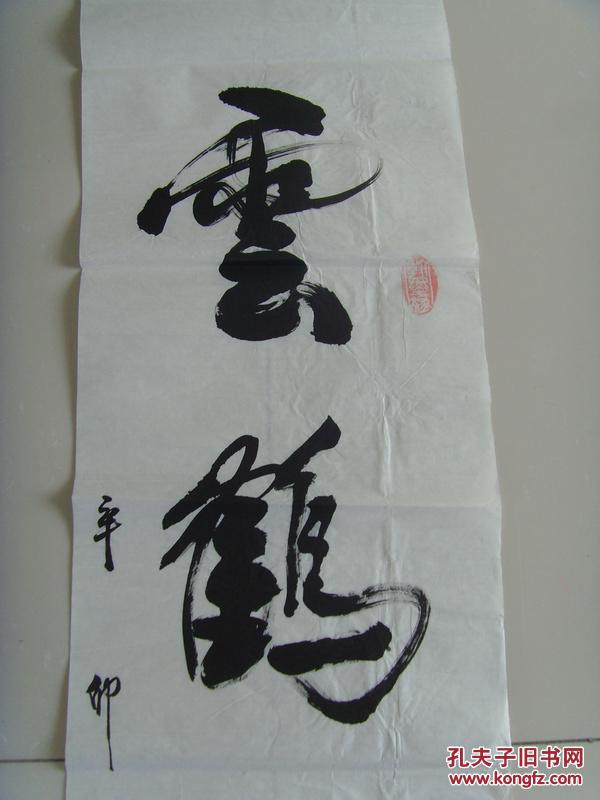 雲鶴
辛卯
孔夫子旧书网
www.kongfz.com